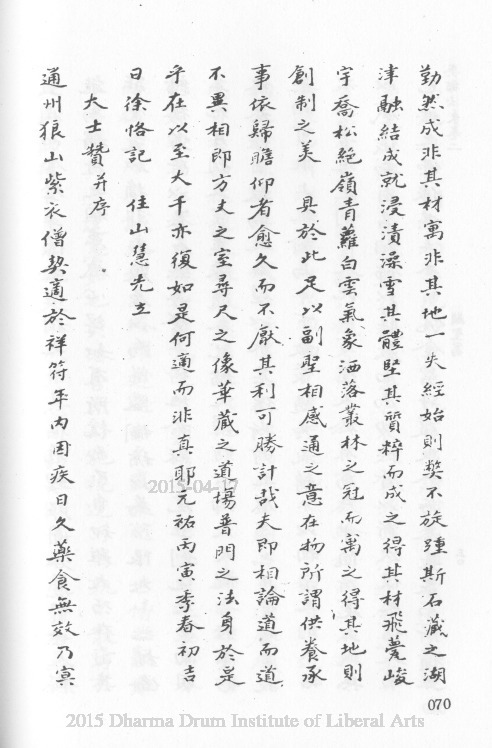 勤然成非其材寓非其地一失經始則弊不旋踵斯石藏之湖
津融結成就浸漬澡雪其體堅其質粹而成之得其材飛甍峻
宇喬松絕嶺青蘿白雲氣象洒落叢林之冠而寓之得其地則
創制之美具於此足以副聖相感通之意在物所謂供養承
事依歸瞻仰者愈久而不厭其利可勝計哉夫即相論道而道
不異相即方丈之室尋尺之像華藏之道場普門之法身於是
乎在以至大千亦復如是何適而非真耶元祐丙寅季春初吉
日徐恪記 住山慧先立
大士贊并序
通州狼山紫衣僧契適於祥符年內因疾日久藥食無效乃冥
2015-04-17
070
2015 Dharma Drum Institute of Liberal Arts